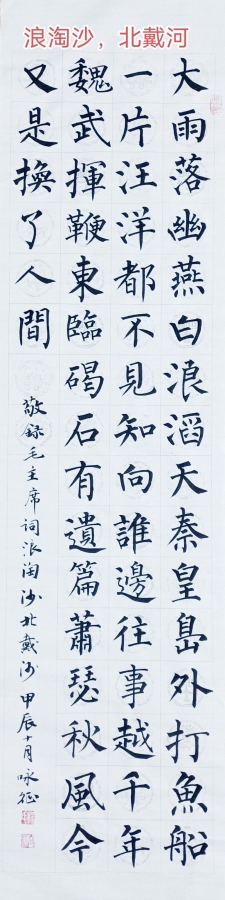 浪淘沙，北戴河
大雨落幽燕白浪滔天秦皇島外打魚船
一片汪洋都不見知向誰邊往事越千年
魏武揮鞭東臨碣石有遺篇蕭瑟秋風今
又是換了人間
敬録毛主席词浪淘沙北戴河 甲辰十月咏征